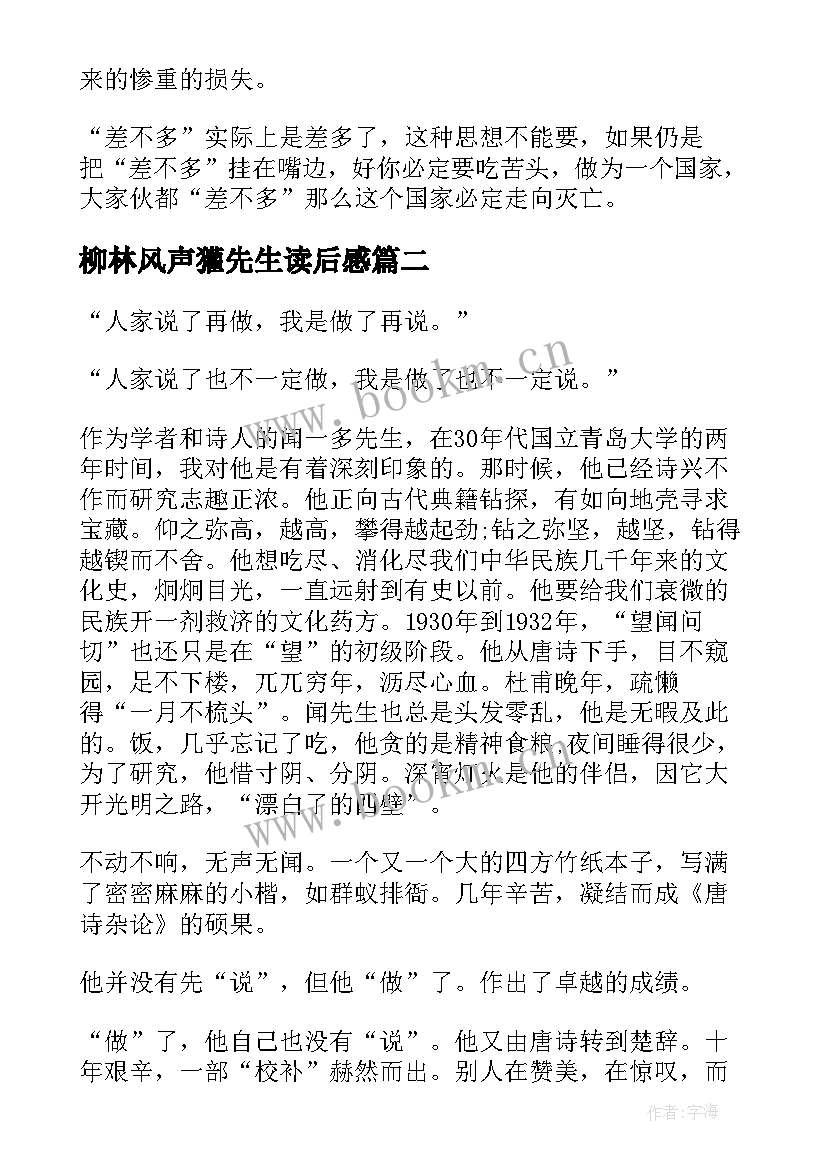 来的惨重的损失。
“差不多”实际上是差多了，这种思想不能要，如果仍是
把“差不多”挂在嘴边，好你必定要吃苦头，做为一个国家，
大家伙都“差不多”那么这个国家必定走向灭亡。
柳林风声獾先生读后感篇二
“人家说了再做，我是做了再说。”
“人家说了也不一定做，我是做了也不一定说。”
作为学者和诗人的闻一多先生，在30年代国立青岛大学的两
年时间，我对他是有着深刻印象的。那时候，他已经诗兴不
作而研究志趣正浓。他正向古代典籍钻探，有如向地壳寻求
宝藏。仰之弥高，越高，攀得越起劲;钻之弥坚，越坚，钻得
越锲而不舍。他想吃尽、消化尽我们中华民族几千年来的文
化史，炯炯目光，一直远射到有史以前。他要给我们衰微的
民族开一剂救济的文化药方。1930年到1932年，“望闻问
切”也还只是在“望”的初级阶段。他从唐诗下手，目不窥
园，足不下楼，兀兀穷年，沥尽心血。杜甫晚年，疏懒
得“一月不梳头”。闻先生也总是头发零乱，他是无暇及此
的。饭，几乎忘记了吃，他贪的是精神食粮;夜间睡得很少，
为了研究，他惜寸阴、分阴。深宵灯火是他的伴侣，因它大
开光明之路，“漂白了的四壁”。
不动不响，无声无闻。一个又一个大的四方竹纸本子，写满
了密密麻麻的小楷，如群蚁排衙。几年辛苦，凝结而成《唐
诗杂论》的硕果。
他并没有先“说”，但他“做”了。作出了卓越的成绩。
“做”了，他自己也没有“说”。他又由唐诗转到楚辞。十
年艰辛，一部“校补”赫然而出。别人在赞美，在惊叹，而
www.bookm.cn
www.bookm.cn
作者:字海